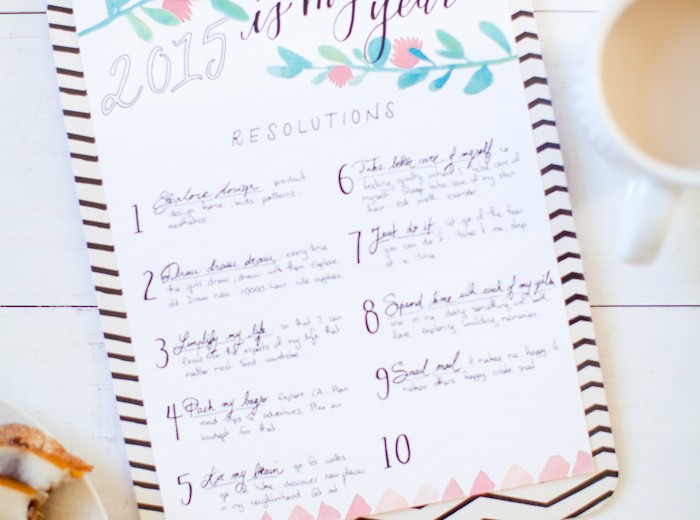 2015 is my year
RESOLUTIONS
1 Explore design product
design home, kids, patterns,
aesthetics.
2 Draw draw draw every time
the girls draw, draw with them Explore
old Draw now 10,000 hour rule applies
3 Simplify my life so that I can
focus on the aspects of my life that
matter most food wardrobe
4 Pack my bags Explore CA Plan
road trips & adventures Plan our
budget for that.
5 for my brain go for walks
go home discover new places
in my neighborhood Get out!
6 Take better care of myself no
feeling guilty when I take care of
myself Sleep take care of my skin
hair eat well exercise
7 Just do it let go of the fear
you can do it take it one step
at a time
8 Spend time with each of my girls
one on one doing something we both
love exploring building memories.
9 Snail mail it makes me happy it
makes others happy create snail
10